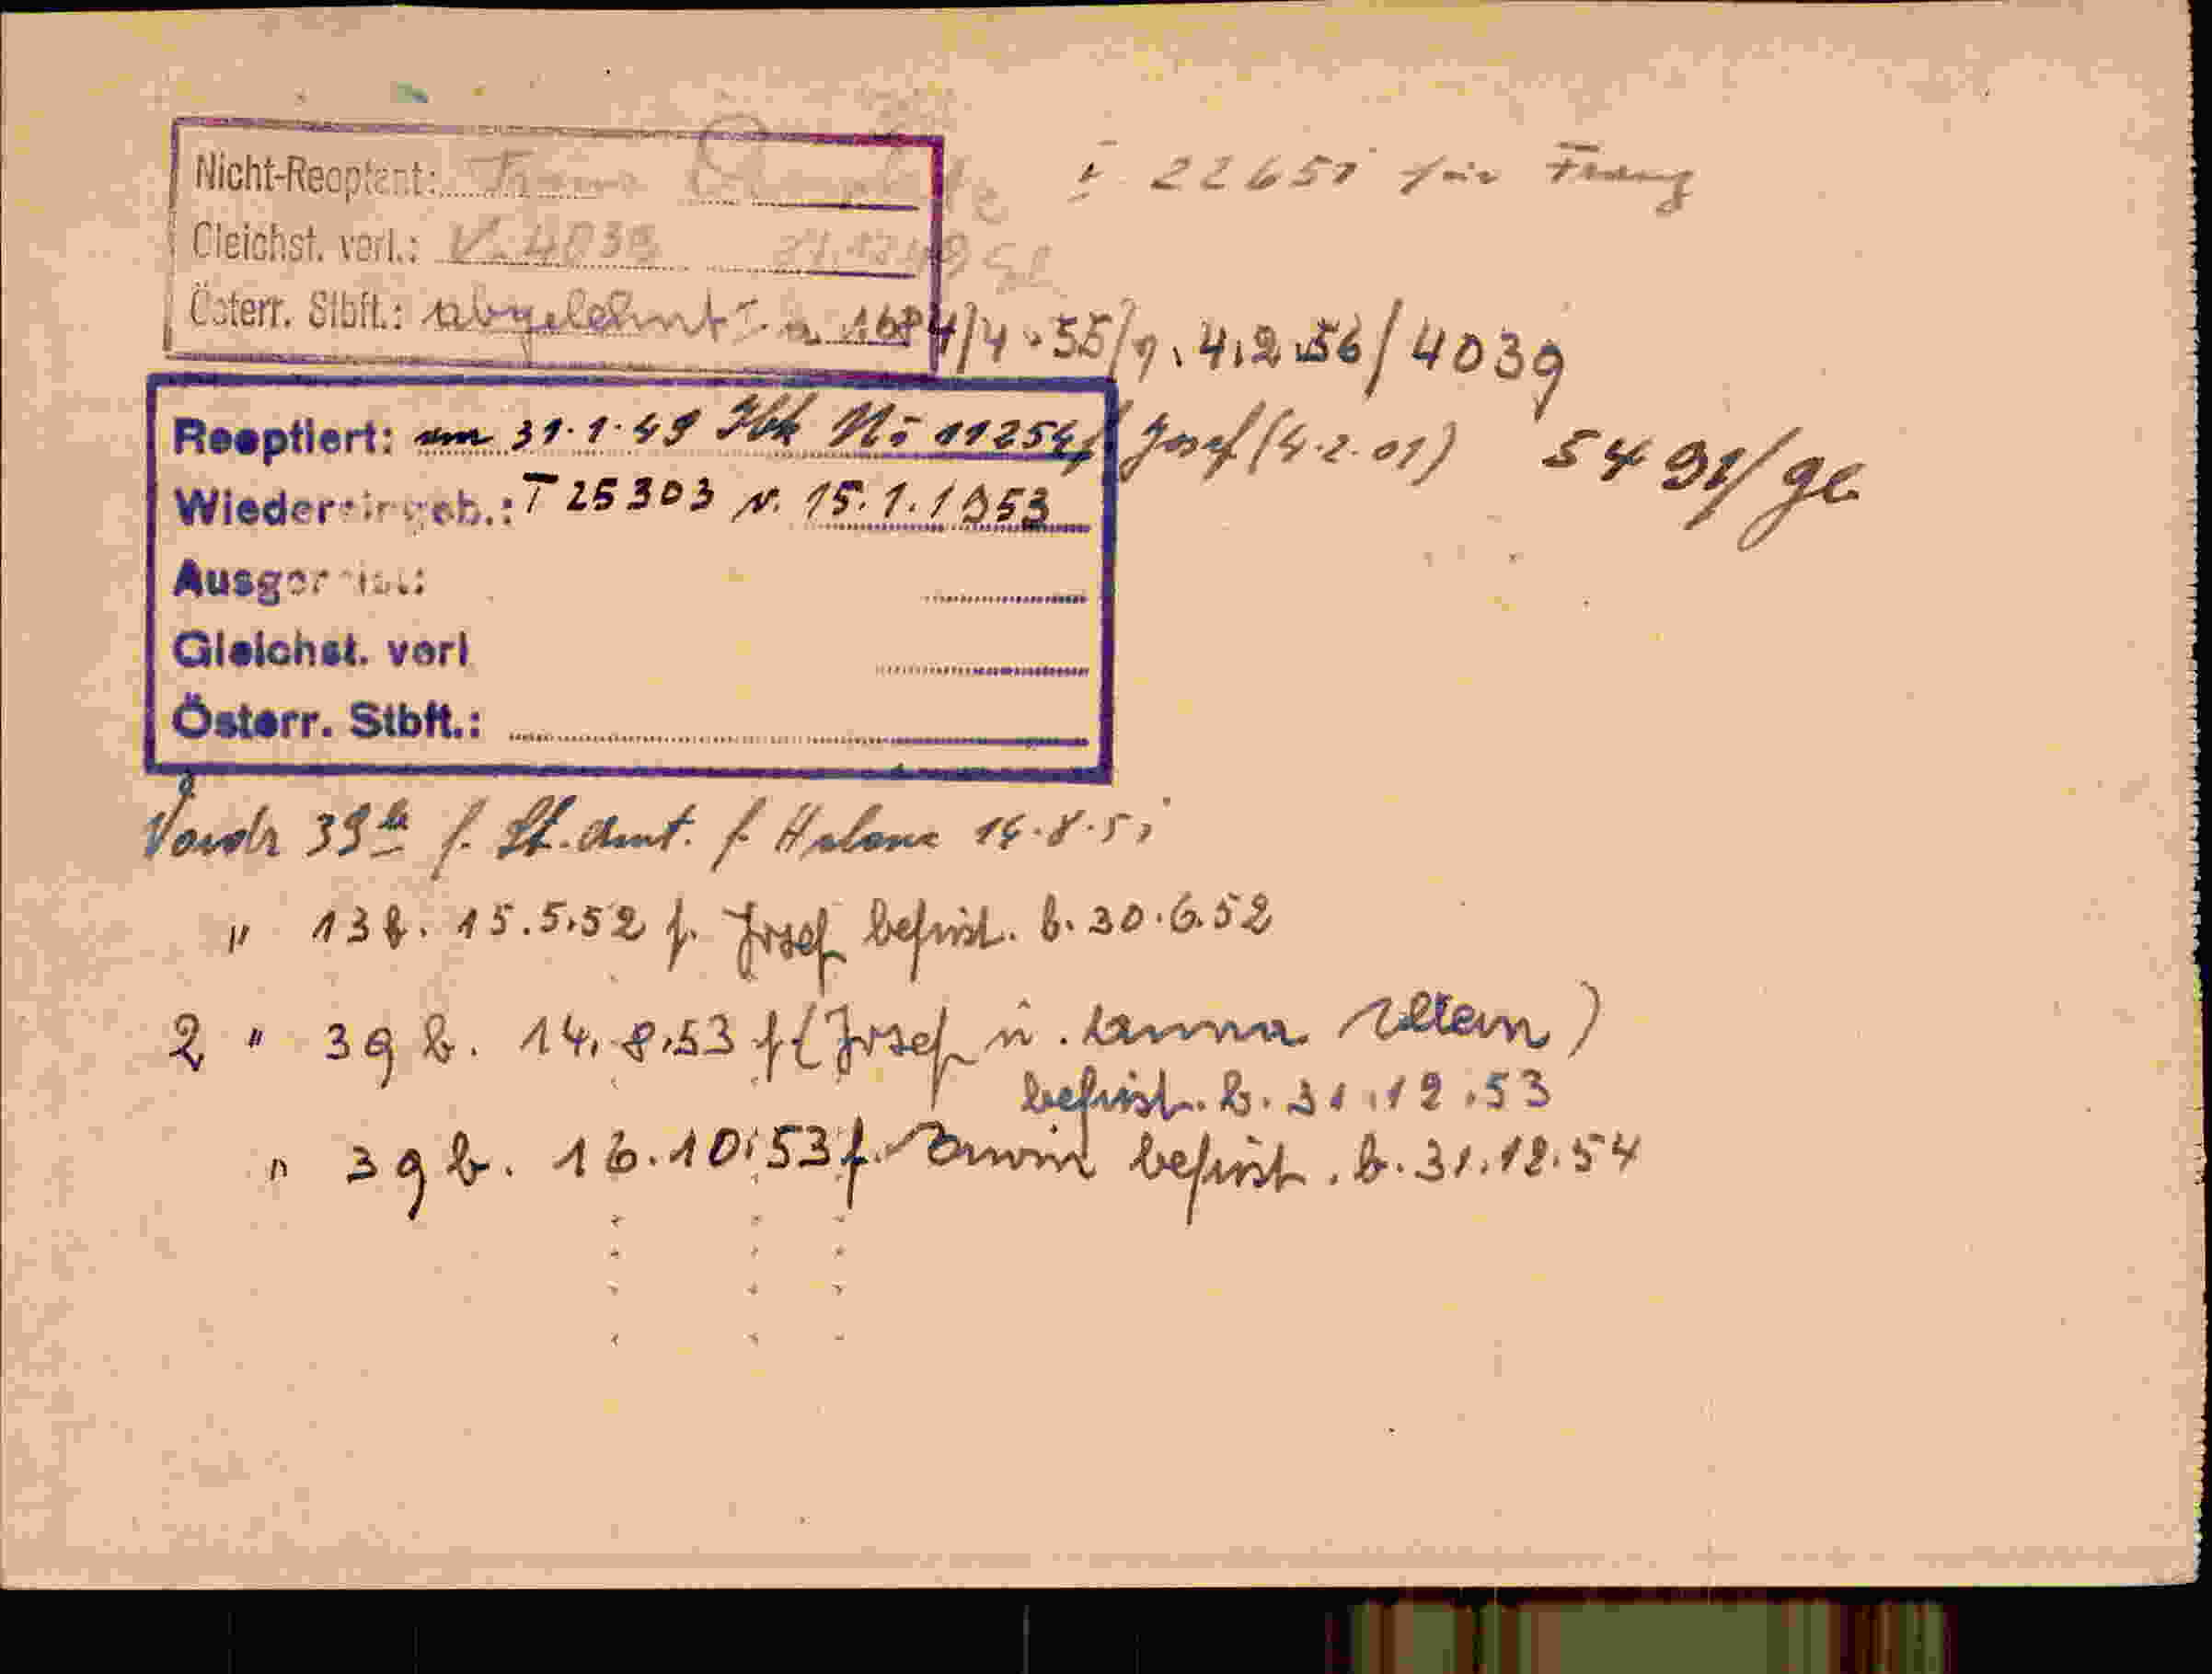 Nicht-Reoptant:
22651 für Franz
Gleichst. verl.: V. 4039 21.12.49
Österr. Stbft.: abgelehnt 1684/4-55/v. 4.2.56/4039
Reoptiert: am 31.1.49 No 11254 f Josef (4.2.01) 5491/ge
Wiedereingeb.: T 25303 v. 15.1.1953
Ausgereist:
Gleichst. verl
Österr. Stbft.:
Vordr 39b f. St.Amt. f Helene 14.8.51
" 13 b. 15.5.52 f. Josef befrist. b. 30.6.52
2 " 39 b. 14.8.53 f (Josef u. Anna Eltern)
befrist. b. 31.12.53
" 39 b. 16.10.53 f. Erwin befrist. b. 31.12.54